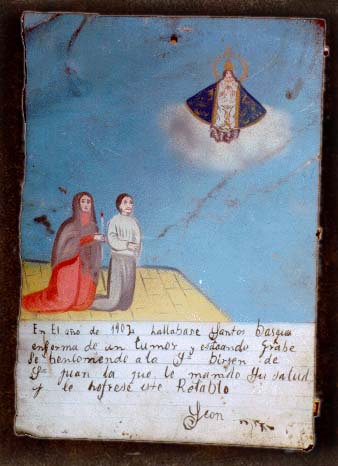 En El año de 1907 hallabase Santos basques
enferma de un tumor y estando grabe
se hencomiende a la Sa birjen de
Sn juan la que le mando Su salud
y le hofrese este Retablo
Leon